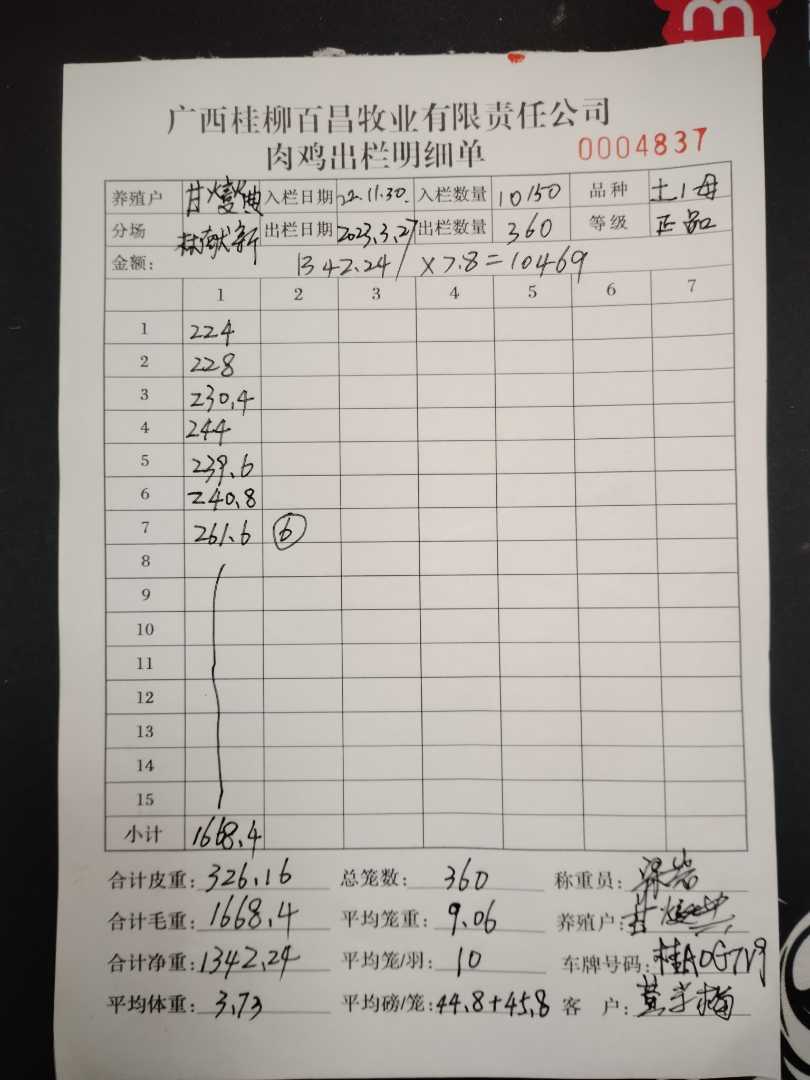 广西桂柳百昌牧业有限责任公司
肉鸡出栏明细单 0004837
养殖户 甘 入栏日期 22.11.30. 入栏数量 10150 品种 土1母
分场 林献新 出栏日期 2023.3.27 出栏数量 360 等级 正品
金额: 1342.24 / ×7.8=10469
1 2 3 4 5 6 7
1 224
2 228
3 230.4
4 244
5 239.6
6 240.8
7 261.6 ⑥
8
9
10
11
12
13
14
15
小计 1668.4
合计皮重: 326.16 总笼数: 360 称重员: 梁岩
合计毛重: 1668.4 平均笼重: 9.06 养殖户: 甘
合计净重: 1342.24 平均笼/羽: 10 车牌号码:
平均体重: 3.73 平均磅/笼: 44.8+45.8 客 户: 黄